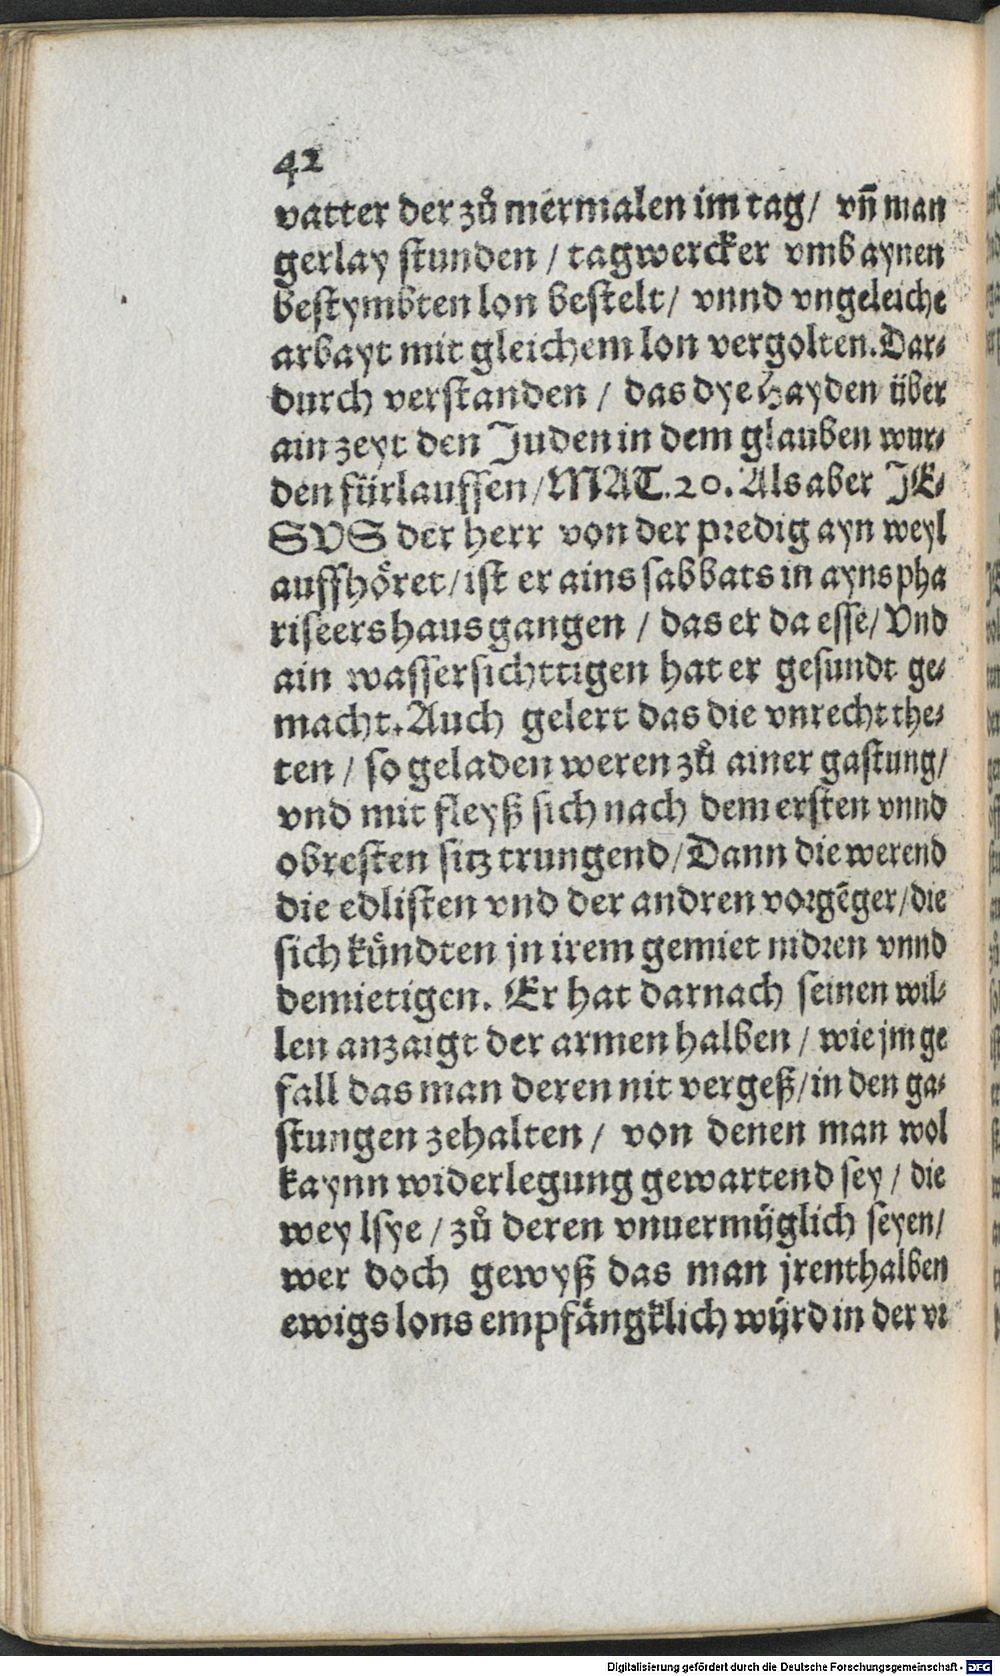 42
vatter der zuͦ mermalen im tag/ vn̄ man
gerlay stunden / tagwercker vmb aynen
bestymbten lon bestelt/ vnnd vngeleiche
arbayt mit gleichem lon vergolten. Dar-
durch verstanden / das dye Hayden über
ain zeyt den Juden in dem glauben wur-
den fürlauffen/MAT.20. Als aber JE-
SVS der herr von der predig ayn weyl
auffhöret/ist er ains sabbats in ayns pha
riseers haus gangen / das er da esse/ Vnd
ain wassersichttigen hat er gesundt ge-
macht. Auch gelert das die vnrecht the-
ten / so geladen weren zuͦ ainer gastung/
vnd mit fleyß sich nach dem ersten vnnd
obresten sitz trungend/Dann die werend
die edlisten vnd der andren vorgẽger/die
sich kündten jn irem gemiet nidren vnnd
demietigen. Er hat darnach seinen wil-
len anzaigt der armen halben / wie jm ge
fall das man deren nit vergeß/in den ga-
stungen zehalten / von denen man wol
kaynn widerlegung gewartend sey / die
wey lsye / zuͦ deren vnuermüglich seyen/
wer doch gewyß das man jrenthalben
ewigs lons empfängklich würd in der vr
Digitalisierung gefördert durch die Deutsche Forschungsgemeinschaft - DFG